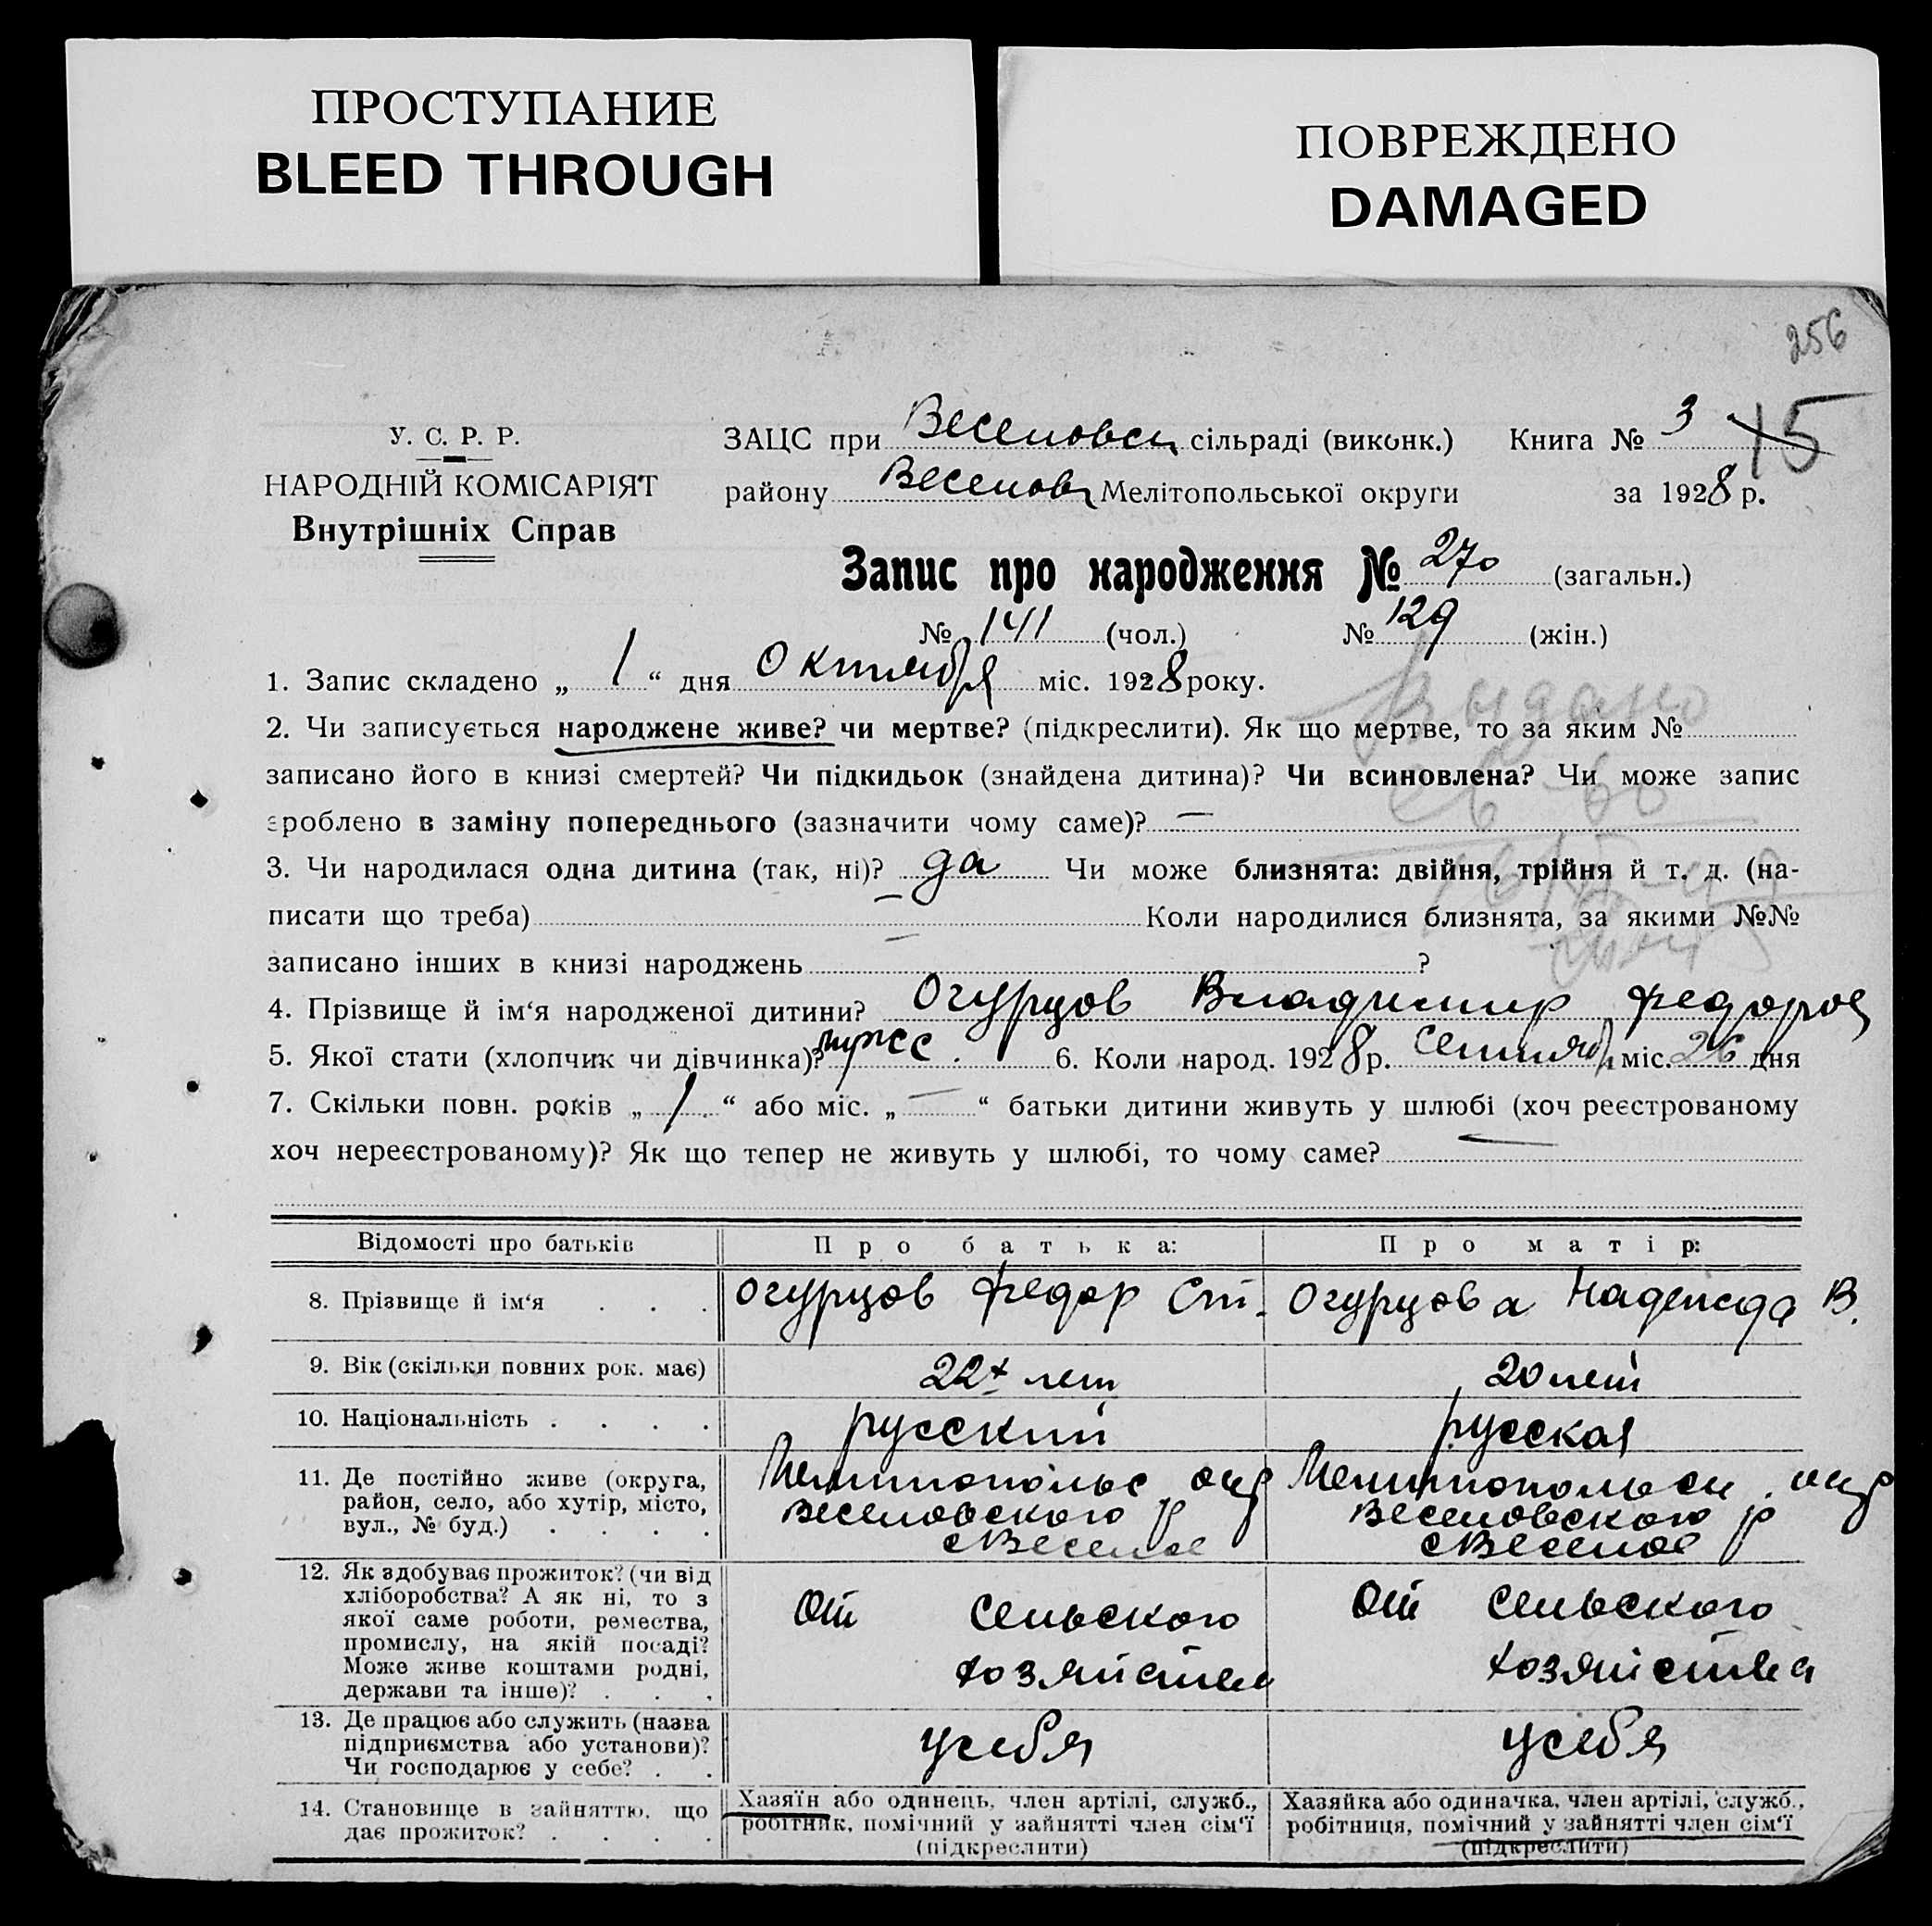 ПРОСТУПАНИЕ
BLEED THROUGH
ПОВРЕЖДЕНО
DAMAGED
256
У. С. Р. Р.
НАРОДНІЙ КОМІСАРІЯТ
Внутрішніх Справ
ЗАЦС при Веселовск сільраді (виконк.) Книга № 3 15
району Веселов Мелітопольської округи за 1928 р.
Запис про народження № 270 (загальн.)
№ 141 (чол.) № 129 (жін.)
1. Запис складено „ 1 “ дня Октября міс. 1928 року.
2. Чи записується народжене живе? чи мертве? (підкреслити). Як що мертве, то за яким №
записано його в книзі смертей? Чи підкидьок (знайдена дитина)? Чи всиновлена? Чи може запис
зроблено в заміну попереднього (зазначити чому саме)? —
Выдано
св-во
3. Чи народилася одна дитина (так, ні)? да Чи може близнята: двійня, трійня й т. д. (на-
писати що треба) — Коли народилися близнята, за якими №№
записано інших в книзі народжень — ?
4. Прізвище й ім‘я народженої дитини? Огурцов Владимир Федоров
5. Якої стати (хлопчик чи дівчинка)? мужс. 6. Коли народ. 1928 р. Сентяб міс. 26 дня
7. Скільки повн. років „ 1 “ або міс. „ — “ батьки дитини живуть у шлюбі (хоч реєстрованому
хоч нереєстрованому)? Як що тепер не живуть у шлюбі, то чому саме? —
Відомості про батьків Про батька: Про матір:
8. Прізвище й ім‘я . . . Огурцов Федор Ст. Огурцова Надежда В.
9. Вік (скільки повних рок. має) 22х лет 20 лет
10. Національність . . . . русский русская
11. Де постійно живе (округа,
район, село, або хутір, місто,
вул., № буд.) . . . .
Мелитопольс окр
Веселовского р
с Веселое
Мелитопольск. окр
Веселовского р
с Веселое
12. Як здобуває прожиток? (чи від
хліборобства? А як ні, то з
якої саме роботи, ремества,
промислу, на якій посаді?
Може живе коштами родні,
держави та інше)? . . .
От сельского
хозяйства
От сельского
хозяйства
13. Де працює або служить (назва
підприємства або установи)?
Чи господарює у себе? . .
у себя
у себя
14. Становище в зайняттю, що
дає прожиток? . . . .
Хазяїн або одинець, член артілі, служб.,
робітник, помічний у зайнятті член сім‘ї
(підкреслити)
Хазяйка або одиначка, член артілі, служб.,
робітниця, помічний у зайнятті член сім‘ї
(підкреслити)